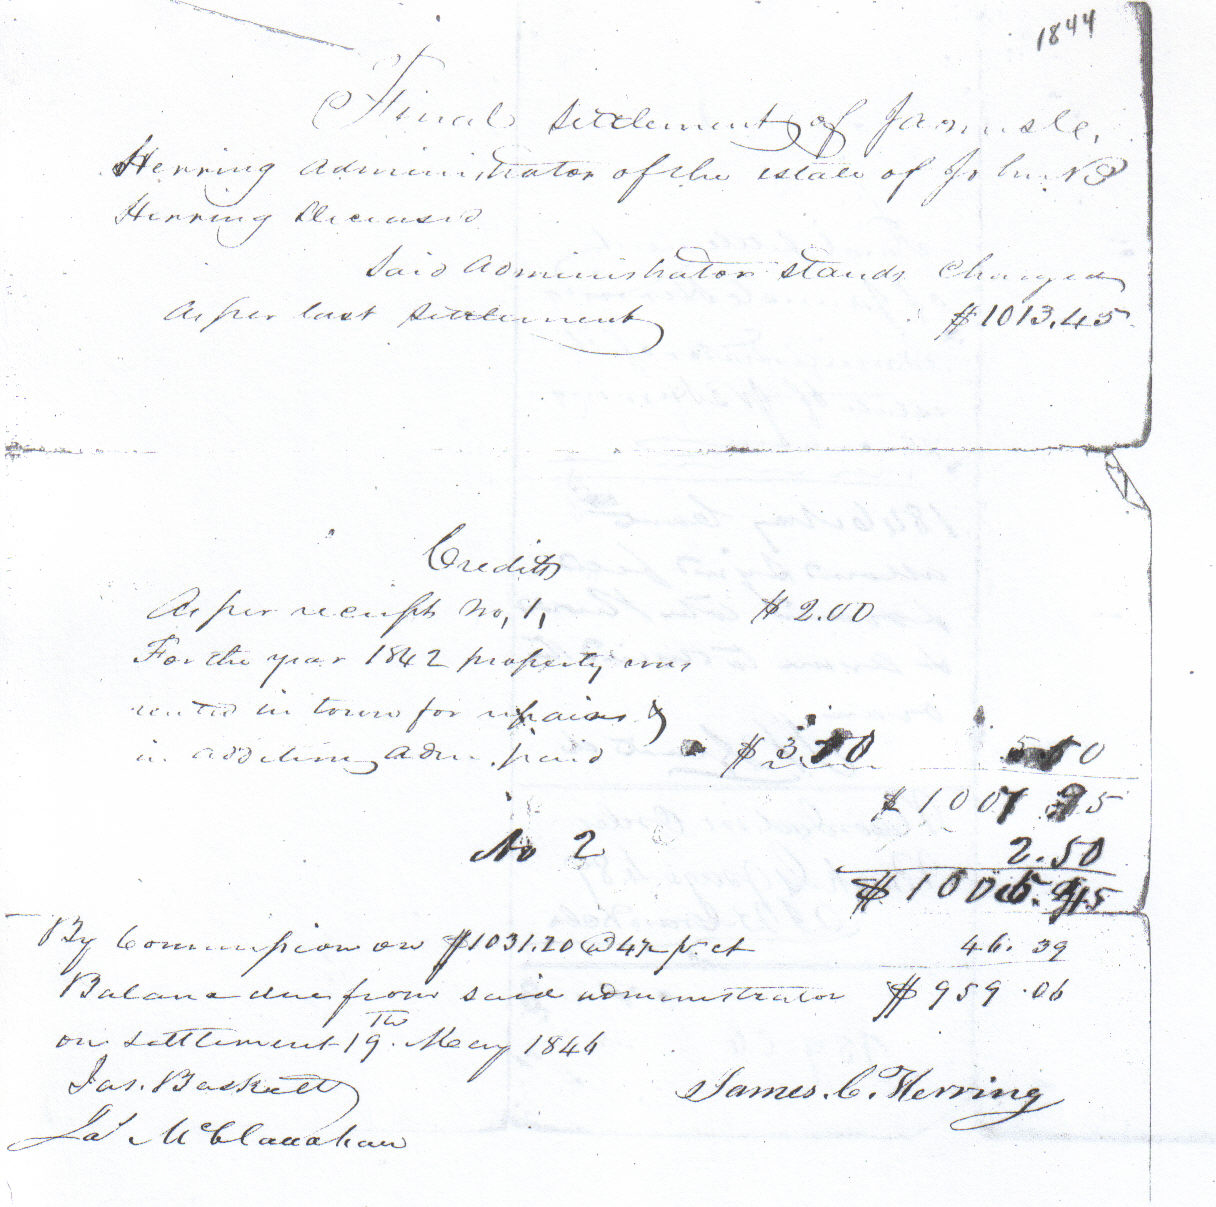 1844
Final settlement of James C.
Herring administrator of the estate of John B
Herring Deceased
Said Administrator stands Charged
As per last settlement $1013.45
Credits
As per receipt No, 1, $2.00
For the year 1842 property was
rented in town for repairs &
in addition, Adm. paid $3.50 5.50
$1007.95
No 2 2.50
$1005.45
By Commission on $1031.20 @ 4½ pr ct 46.39
Balance due from said administrator $959.06
on settlement 19th May 1846
Jas. Baskett
James. C. Herring
Jas McClanahan